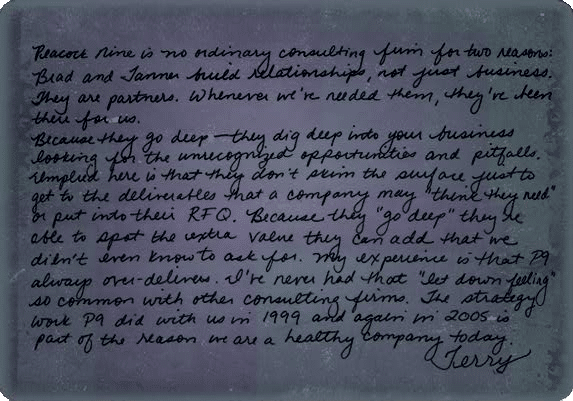 Peacock Nine is no ordinary consulting firm for two reasons:
Brad and Tanner build relationships, not just business.
They are partners. Whenever we've needed them, they've been
there for us.
Because they go deep — they dig deep into your business
looking for the unrecognized opportunities and pitfalls.
Implied here is that they don't skim the surface just to
get to the deliverables that a company may "think they need"
or put into their RFQ. Because they "go deep" they're
able to spot the extra value they can add that we
didn't even know to ask for. My experience is that P9
always over-delivers. I've never had that "let down feeling"
so common with other consulting firms. The strategy
work P9 did with us in 1999 and again in 2005 is
part of the reason we are a healthy company today.
Terry